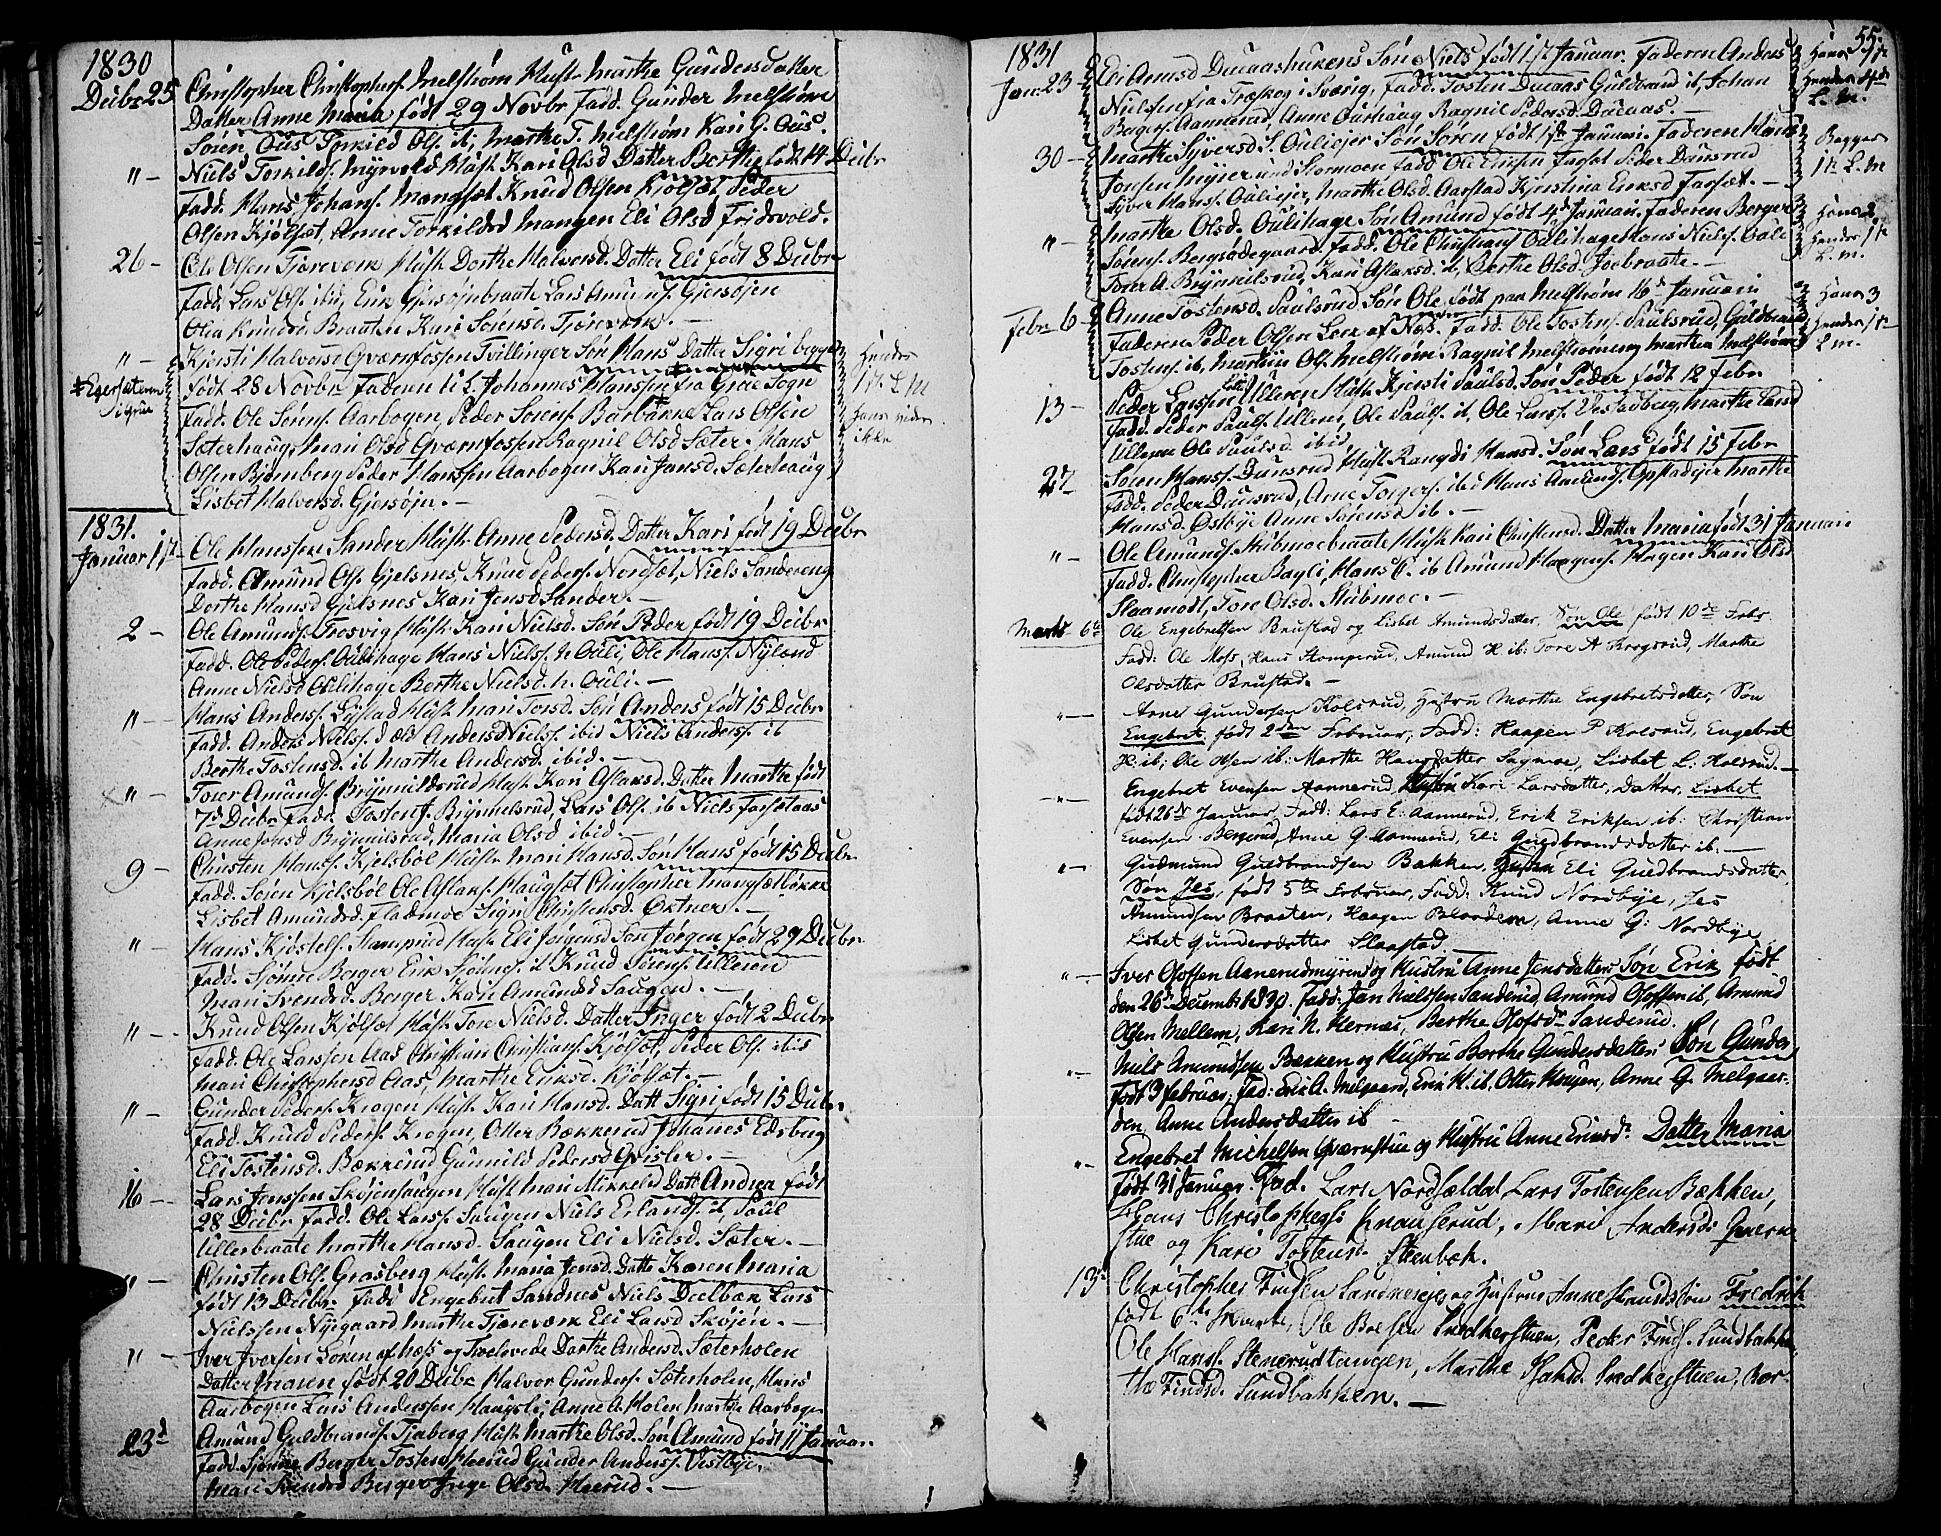 1830
Decbr 25 Christopher Christophers. Melstrøm Hust. Marthe Gundersdatter
Datter Anne Maria født 29 Novbr Fadd. Gunder Melstrøm
Søren Ous Torkild Ols. ib, Marthe T. Melstrøm Kari G. Ous.
" – Niels Torkilds. Myrvold Hust. Kari Olsd. Datter Berthe født 14 Decbr
Fadd. Hans Johans. Mangset Knud Olsen Kjølset, Peder
Olsen Kjølset, Anne Torkildsd. Mangen Eli Olsd. Fridsvold.
26 – Ole Olsen Tjæreværk Hust. Dorthe Halvorsd. Datter Eli født 8 Decbr
Fadd. Lars Ols. ibid, Erik Gjersøjnbraate Lars Amunds. Gjersøjen
Olia Knudsd. Braaten Kari Sørensd. Tjæreværk. –
" – Kjersti Halvorsd. Qværnfossen Tvillinger Søn Hans Datter Sigri begge
født 28 Novbr Faderen U. S. Johannes Hanssen fra Grue Sogn
Fadd. Ole Sørens. Aarbogen, Peder Sørens. Barbakke Lars Olsen
Sæterhaug, Mari Olsd. Qværnfossen Ragnil Olsd. Sæter. Hans
Olsen Bjørnberg Peder Hanssen Aarbogen Kari Jansd. Sæterhaug
Lisbet Halvorsd. Gjersøjen. –
Hendes
1te L. M
hans vides
ikke
1831.
Januar 1te Ole Hanssen Sander Hust. Anne Pedersd. Datter Kari født 19 Decbr
Fadd. Amund Ols. Gjelsnes, Knud Peders. Nordset, Niels Sandereng
Dorthe Hansd. Gjelsnes Kari Jensd. Sander. –
2 – Ole Amunds. Trosvig Hust. Kari Nielsd. Søn Peder født 19 Decbr
Fadd. Ole Peders. Oulihage Hans Nielss. n. Ouli, Ole Hanss. Nylænd
Anne Nielsd. Oulihage Berthe Nielsd. n. Ouli. –
" – Hans Anders. Lystad Hust. Mari Torsd. Søn Anders født 15 Decbr
Fadd. Anders Nielss. d. æld. Anders Nielss. ibid Niels Anderss. ib
Berthe Tostensd. ib Marthe Andersd. ibid. –
" – Torer Amunds. Brynnildsrud Hust. Kari Aslaksd. Datter Marthe født
7d Decbr Fadd. Tosten T. Brynnilsrud, Lars Ols. ib Niels
Anne Jonsd. Brynnilsrud, Maria Olsd. ibid. –
9 – Christen Hanss. Kjelsbøl Hust. Mari Hansd. Søn Hans født 15 Decbr
Fadd. Søren Kjelsbøl Ole Aslaks. Haugset Christopher Mangsetbakke
Lisbet Amundsd. Flademoe Sigri Christensd. Oktner. –
" – Hans Kjøstels. Stamprud Hust. Eli Jørgensd. Søn Jørgen født 29 Decbr
Fadd. Sjønne Berger Erik Sjøns. ib Knud Sørens. Ulleren
Mari Svendsd. Berger Kari Amundsd. Saugen. –
" – Knud Olsen Kjølset Hust. Tore Nielsd. Datter Inger født 2 Decbr
Fadd. Ole Larssen Aas Christian Christians. Kjølset, Peder Ols. ibid
Mari Christophersd. Aas, Marthe Eriksd. Kjølset. –
" – Gunder Peders. Krogen Hust. Kari Hansd. Datt. Sigri født 15 Decbr
Fadd. Knud Peders. Krogen, Otter Bækkerud Johanes Edsberg
Eli Tostensd. Bækkerud Gunnild Pedersd. Qvisler. –
16 – Lars Jenssen Skøjensaugen Hust. Mari Mikkelsd. Datt. Andrea født
28 Decbr Fadd. Ole Larss. Saugen Niels Erlands. ib, Paul
Ullerbraate Marthe Hansd. Saugen Eli Nielsd. Sæter. –
" – Christen Ols. Grasberg Hust. Maria Jensd. Datt. Karen Maria
født 13 Decbr. Fadd. Engebret Sandnes Niels Deelbæk Lars
Nielssen Nygaard Marthe Tjæreværk Eli Larsd. Skøjen. –
" – Iver Iversen Løken af Næss og Trolovede Dorthe Andersd. Sæterholen
Datter Maren født 20 Decbr Halvor Gunders. Sæterholen, Hans
Aarbogen Lars Anderssen Haugsli, Anne A. Holen Marthe Aarbogen
23d Amund Guldbrands. Tjaberg Hust. Marthe Olsd. Søn Amund født 11 Januar
Fadd. Sjønne Berger Tosten Hoerud Gunder Anders. Vestbye.
Mari Svendsd. Berger Inge Olsd. Hoerud. –
1831
55.
Jan. 23 – Eli Amundsd. Ducaashukens Søn Niels født 1te Januar. Faderen Anders
Nielsen fra Træskog i Sverig, Fadd. Tosten Ducaas Guldbrand ib, Johan
Bagers. Aamerud, Anne Ourhaug Ragnil Pedersd. Ducaas. –
Hans 1te
Hendes
L. M.
30 – Marthe Syversd. S. Ouliejer Søn Søren født 1ste Januari. Faderen Hans
Jonsen Myrer und Stormoen Fadd. Ole Ericksen Farset Peder Dansrud
Syver Hans. Ouliejer, Marthe Olsd. Aarstad Kjerstina Eriksd. Farset. –
Begges
1te L. M
" – Marthe Olsd. Oulihage Søn Amund født 4d Januari. Faderen Berger
Sørens. Bergsødegaard. Fadd. Ole Christians. Oulihage Hans Niels. Ouli
Torer A. Brynnilsrud, Kari Aslaksd. ib, Berthe Olsd. Joebraate. –
Hans 2,
Hendes 1te
L. M.
Febr. 6 – Anne Tostensd. Paulsrud Søn Ole født paa Melstrøm 16d Januari
Faderen Peder Olsen Leer af Næs. Fadd. Ole Tostens. Paulsrud, Guldbrand
Tostens. ib, Martin Ols. Melstrøm Ragnil Melstrøm og Marthea Melstrøm
Hans 3
Hendes 1te
L. M.
13 – Peder Larssen Ulleren Hust. Kjersti Paulsd. Søn Peder født 12 Febr
Fadd. Peder Pauls. Ulleren, Ole Pauls. ib, Ole Larss. Vestadberg, Marthe Larsd.
Ulleren Ole Paulsd. ibid
27 – Søren Hanss. Dunsrud Hust. Rangdi Hansd. Søn Lars født 15 Febr
Fadd. Peder Dunsrud, Arne Torgers. ibid Hans Amunds. Opstadejer Marthe
Hansd. Østbye Anne Sørensd. ib. –
" – Ole Amunds. Stubmoebraate Hust. Kari Christensd. Datter Maria født 31 Januari
Fadd. Christopher Bagli, Hans C. ib Amund Haagens. Hogen Kari Olsd.
Slaamodt, Tore Olsd. Stubmoe. –
Marts 6te Ole Engebretsen Brustad og Lisbet Amundsdatter, Søn Ole født 10de Febr.
Fadd: Ole Moss, Hans Stomperud, Amund H. ib: Tore A Krogsrud, Marthe
Olsdatter Brustad. –
" – Arne Gundersen Kolsrud, Hustru Marthe Engebretsdatter, Søn
Engebret, født 2den Februar, Fadd: Haagen P. Kolsrud, Engebret
H: ib; Ole Olsen ib: Marthe Hansdatter Sagmoe, Lisbet L: Kolsrud. –
" – Engebret Evensen Aannerud, Hustru Kari Larsdatter, Datter, Lisbet
født 26de Januar, Fadd: Lars E: Aannerud, Erik Eriksen ib: Christian
Evensen Bergerud, Anne G. Aannerud, Eli Guldbrandsdatter ib: –
" – Gudmund Guldbrandsen Bakken, Hustru Eli Guldbrandsdatter,
Søn Jes, født 5te Februar, Fadd: Knud Nordbye, Jes
Amundsen Braaten, Haagen, Anne G: Nordbye
Lisbet Gundersdatter Slaastad.
" – Iver Olofsen Aanerudmyren og Hustru Anne Jensdatters Søn Erik født
den 26de Decembr 1830. Fadd: Jan Nielsen Sanderud, Amund Olofsen ib, Amund
Olsen Mellem, Kari N. Hernæs, Berthe Olofsdr Sanderud.
" – Niels Amundsen Bakken og Hustru Berthe Gundersdatters Søn Gunder
født 3 Februar, Fad: Erik A. Melgaard, Erik H. ib. Otter Haugen, Anne G. Melgaar-
den, Anne Andersdatter ib
" – Engebret Michelsen Qværnstue og Hustru Anne Ericsdr. Datter Maria
født 31 Januar. Fad. Lars Nordsældal Lars Tostensen Bækken,
Hans Christophers. Knauserud, Mari Andersd. Qværn-
stue og Kari Tostensd. Steenbæk.
13de Christopher Findsen Sandnesejer og Hustrue Anne Hansd. Søn Fredrich
født 6te Marts, Ole Boesen Snedkerstuen, Peder Finds. Sundbakke,
Ole Hans. Stenerudtangen, Marthe Snedkerstuen, Ber-
the Findsd. Sundbakken. –